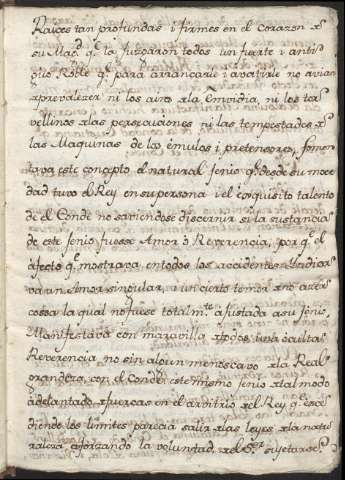 Raices tan profundas i firmes en el corazon de
su Mag.d q.e la juzgaron todos un fuerte i anti-
guo Roble q.e para arrancarle i avatirle no avian
de prevalezer ni los aires de la Embidia, ni los tor-
vellinos de las persecuciones ni las tempestades de
las Maquinas de los emulos i pretensores, fomen
tava este concepto el natural Jenio q.e desde su moce
dad tuvo el Rey en su persona i el exquisito talento
de el Conde no saviendose discernir si la sustancia
de este Jenio fuesse Amor ò Reverencia, porq.e el
afecto q.e mostrava en todos los accidentes Yndica-
va un Amor singular, i un cierto temor de no aver
cossa la qual no fuese totalm.te ajustada a su Jenio,
Manifestava con maravilla de todos una oculta
Reverencia no sin algun menoscavo de la Real
grandeza, con el Conde: este mismo Jenio de tal modo
adelantado de fuerzas en el arbitrio de el Rey q.e exce
diendo los limites parecia salir de las leyes de la natu
raleza aforzando la voluntad de el S.or sujetarse